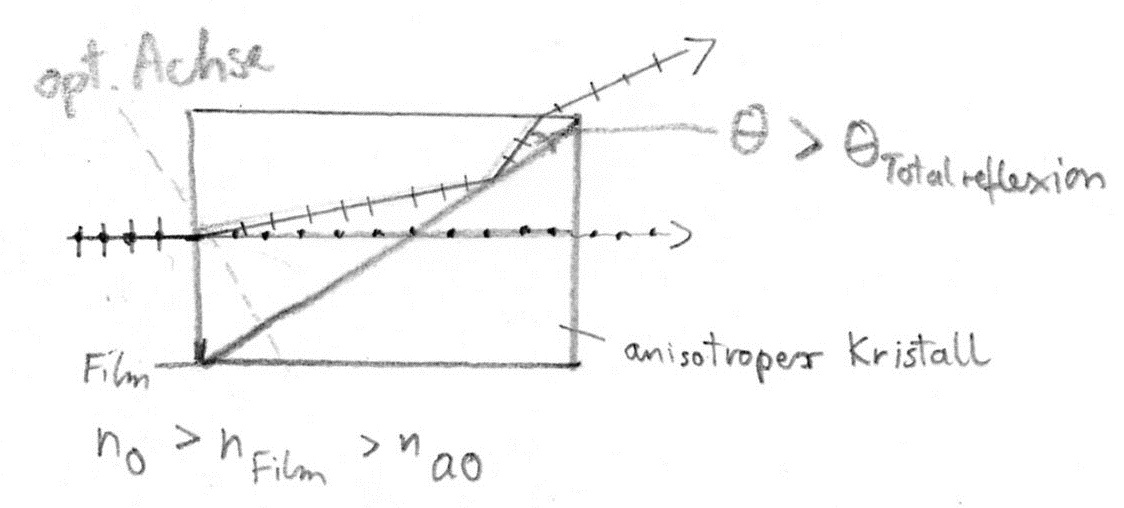 opt. Achse
θ > θ Totalreflexion
anisotroper Kristall
Film
n0 > nFilm > nao